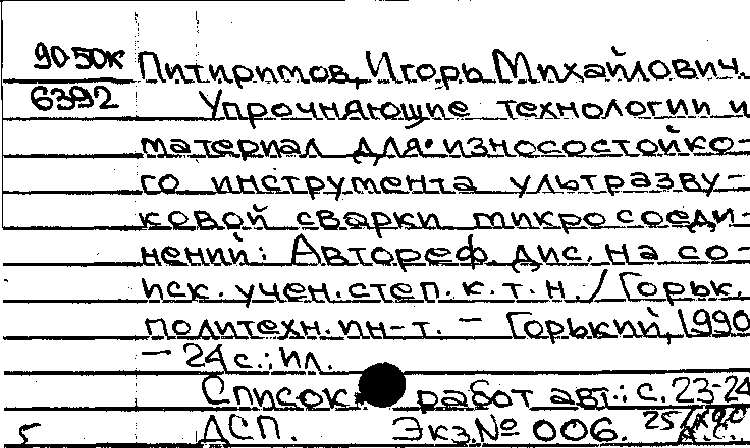 90 50к Питиримов, Игорь Михайлович.
6392 Упрочняющие технологии и
материал для износостойко-
го инструмента ультразву-
ковой сварки микросоеди-
нений: Автореф. дис. на со-
иск. учен. степ. к.т.н. / Горьк.
политехн. ин-т. - Горький, 1990
- 24 с.; ил.
Список работ авт.: с. 23-24
5 ДСП. Экз.№ 006.